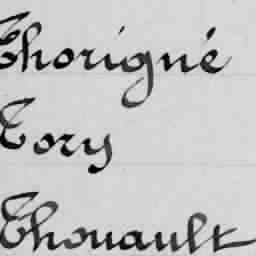 Thorigné
Tory
Thouault